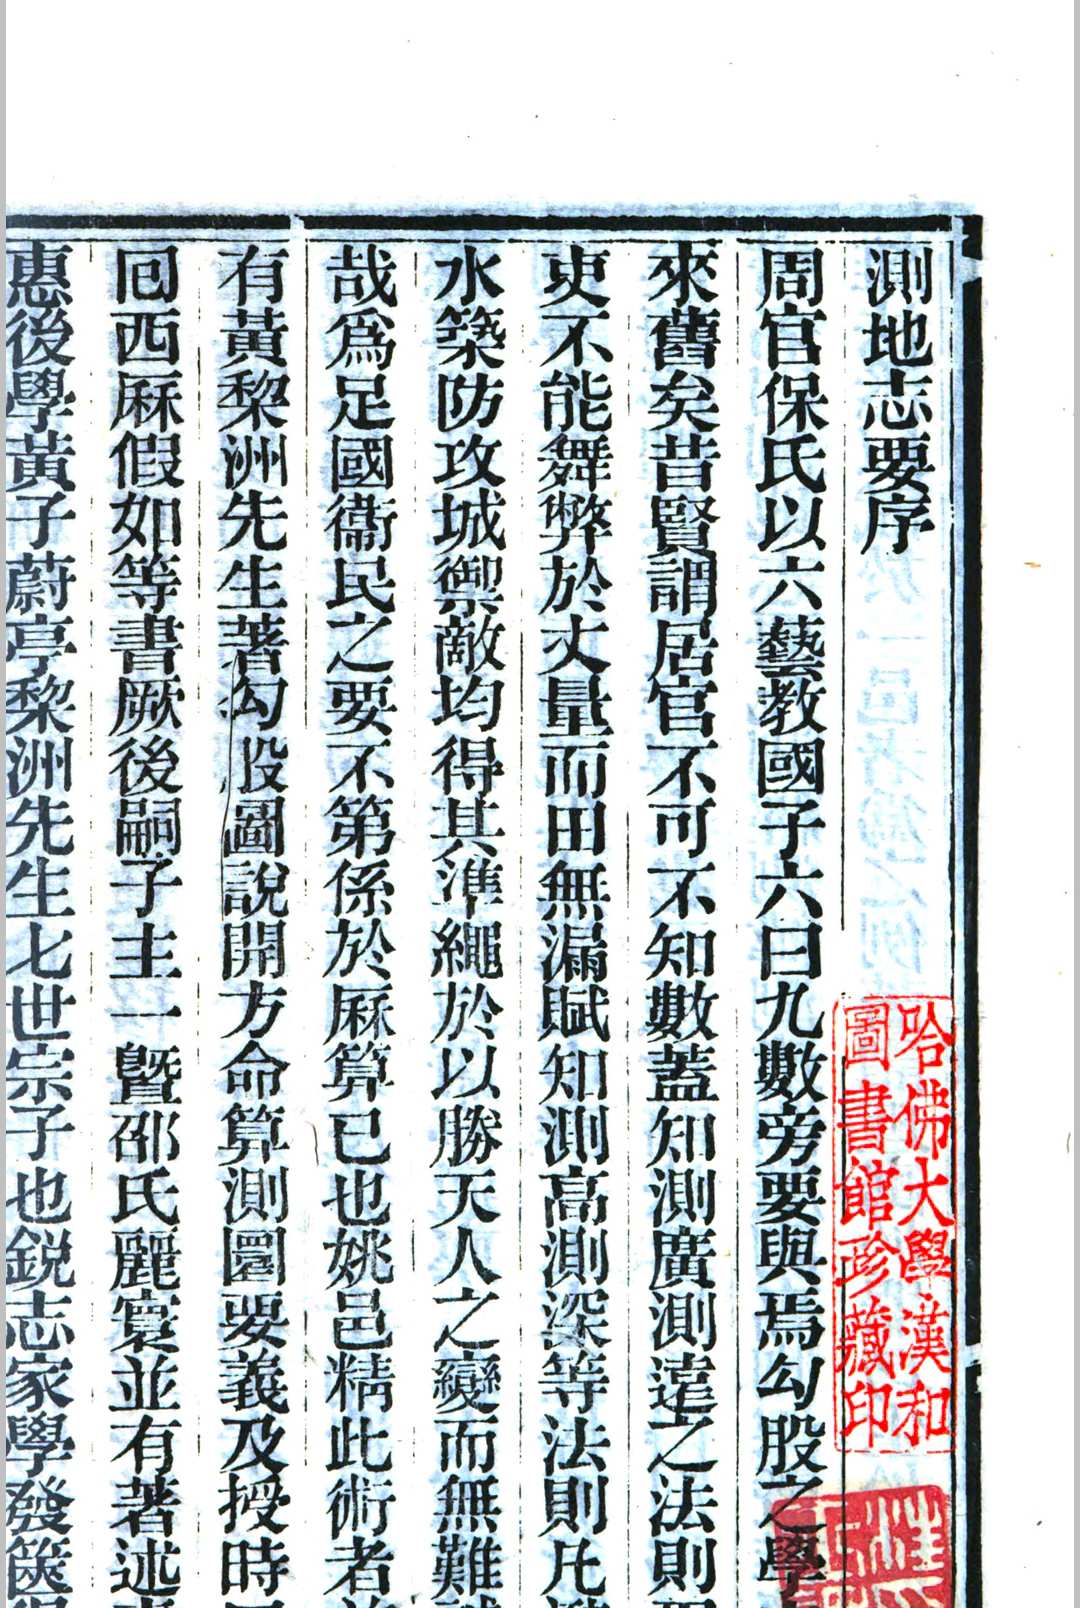 測地志要序
周官保氏以六藝教國子六曰九數旁要與焉勾股之學
來舊矣昔賢謂居官不可不知數蓋知測廣測遠之法則
吏不能舞弊於丈量而田無漏賦知測高測深等法則凡
水築防攻城禦敵均得其準繩於以勝天人之變而無難
哉爲足國衞民之要不第係於厤算已也姚邑精此術者
有黃棃洲先生著勾股圖說開方命算測圜要義及授時
囘西厤假如等書厥後嗣子主一曁邵氏麗寰並有著述
惠後學黃子蔚亭棃洲先生七世宗子也銳志家學發篋
哈佛大學漢和
圖書館珍藏印